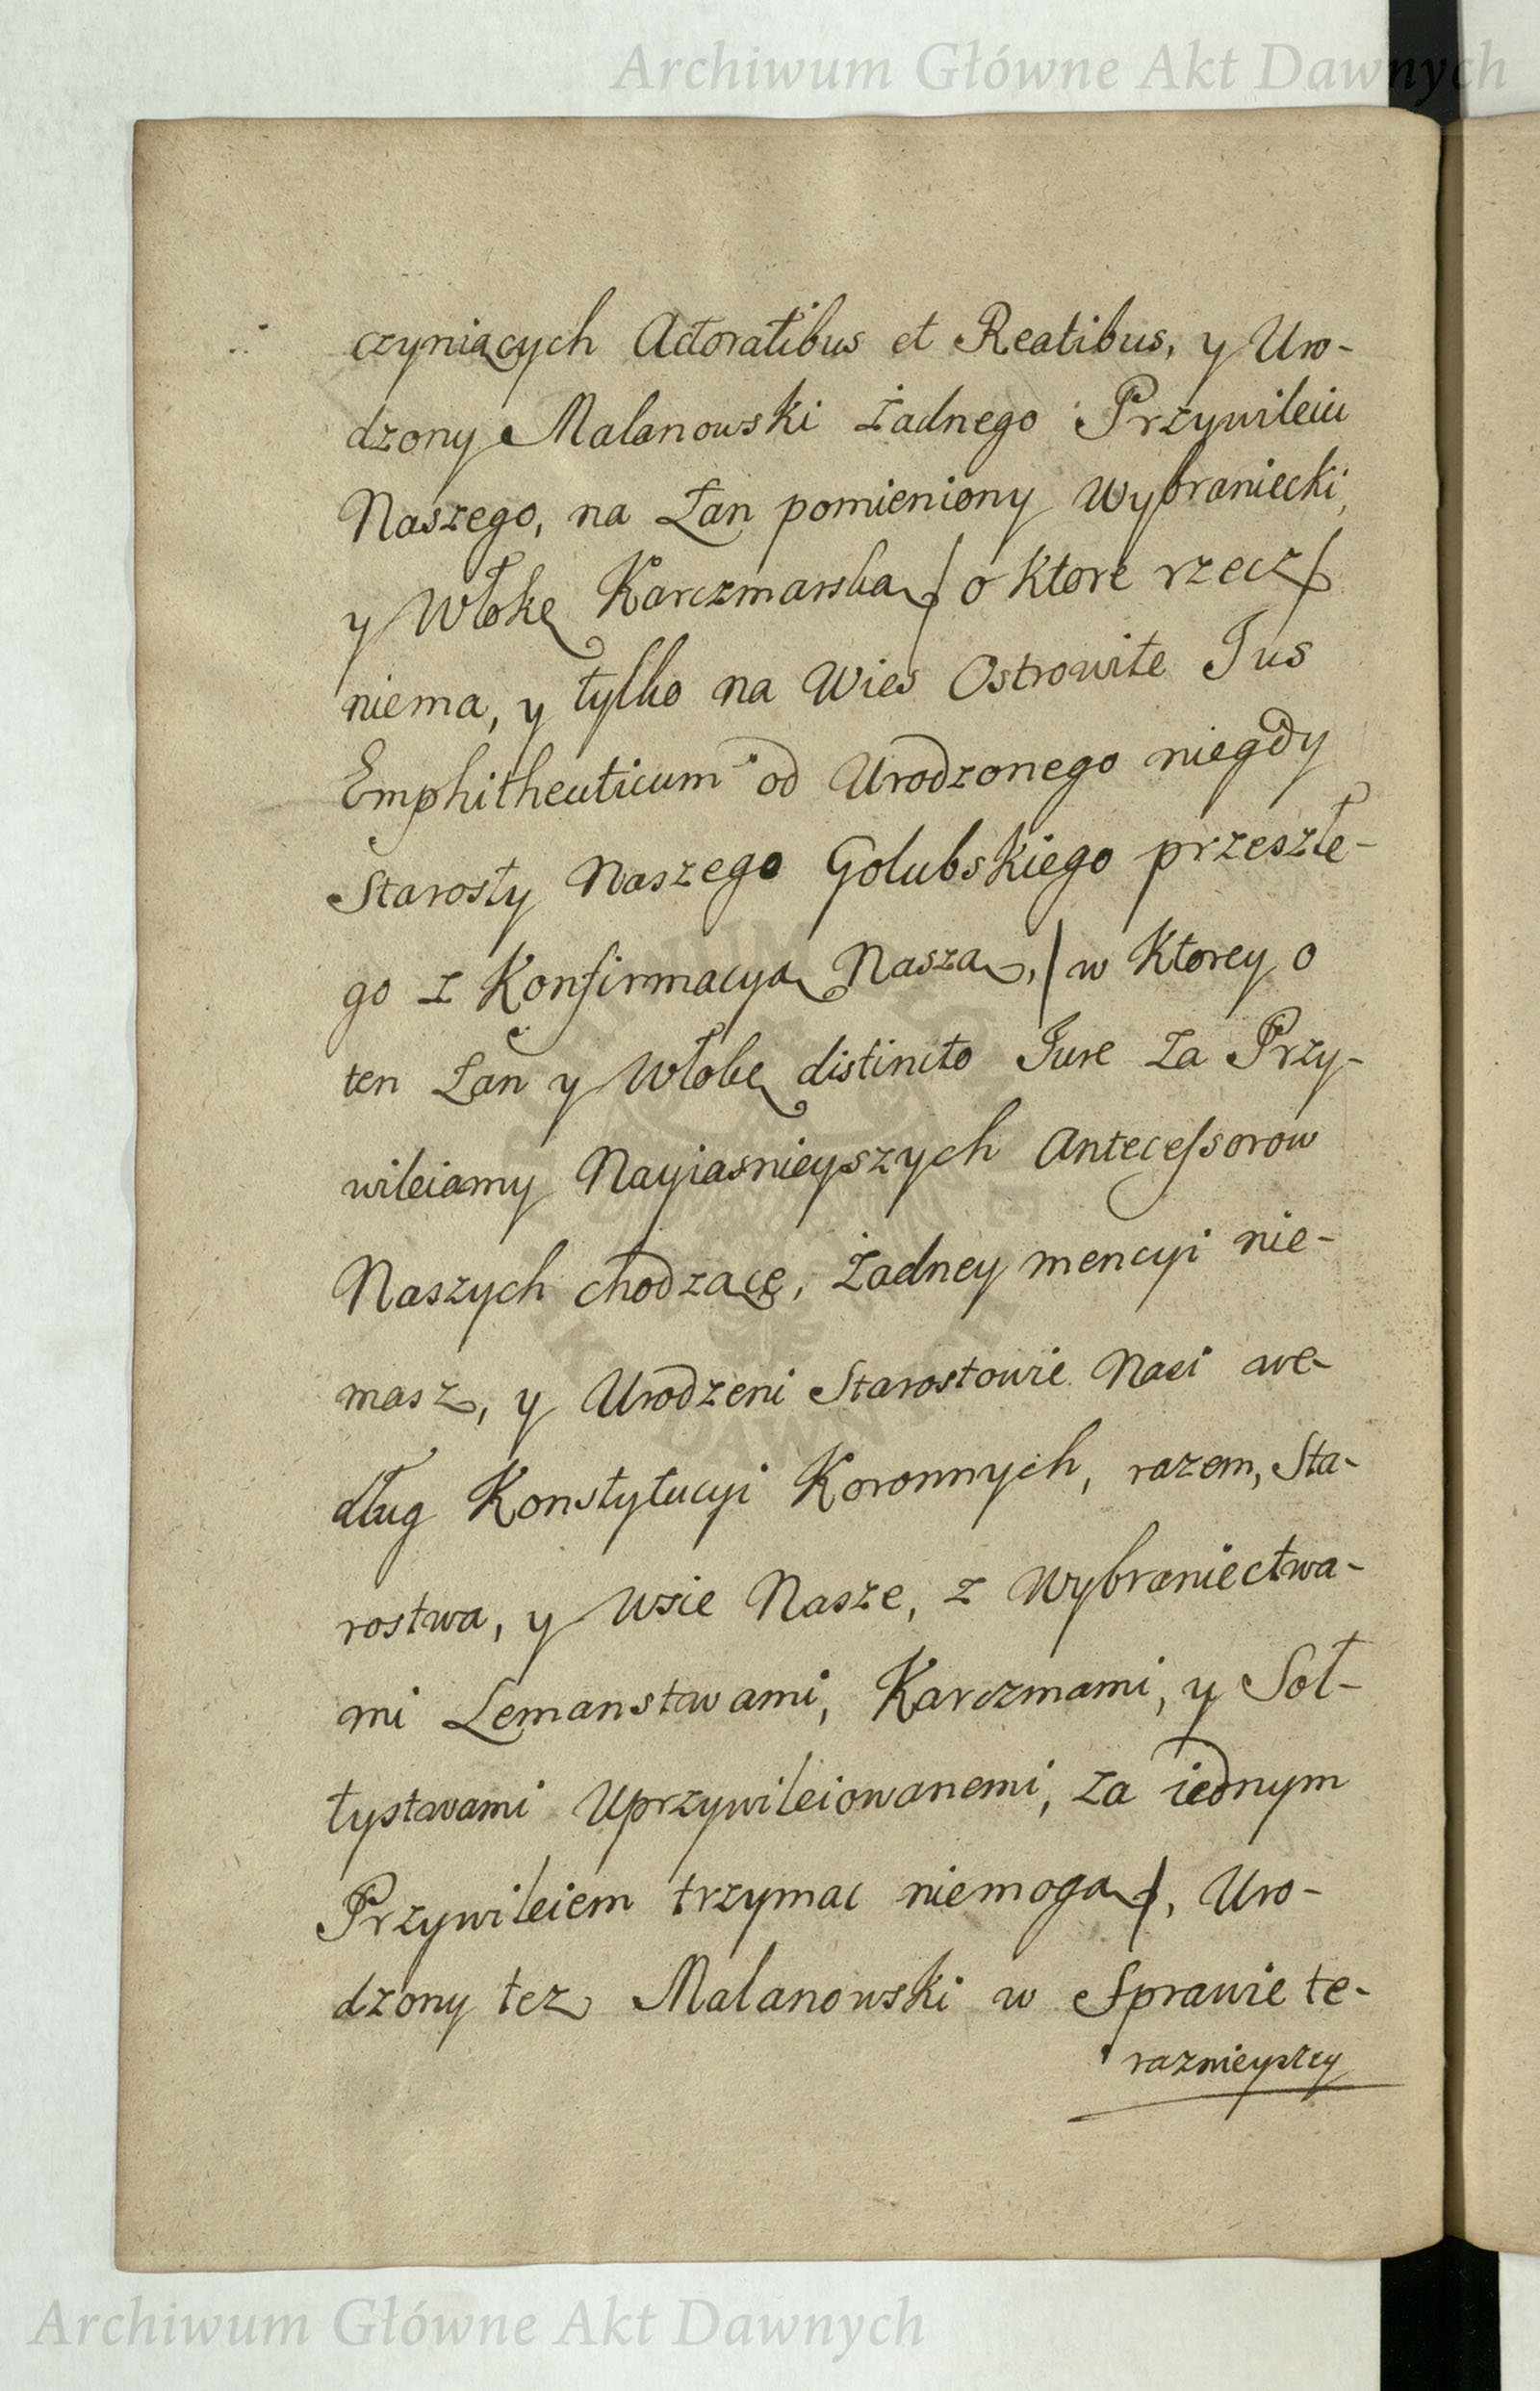 Archiwum Główne Akt Dawnych
czyniących Actoratibus et Reatibus, y Uro-
dzony Malanowski żadnego Przywileiu
Naszego, na Łan pomieniony Wybraniecki,
y Włokę Karczmarską / o ktore rzecz /
niema, y tylko na Wies Ostrowite Jus
Emphitheuticum od Urodzonego niegdy
Starosty Naszego Golubskiego przeszłe-
go z Konfirmacyą Naszą, / w ktorey o
ten Łan y Włokę distincto Jure za Przy-
wileiamy Nayiasnieyszych Antecessorow
Naszych chodzącę, żadney mencyi nie-
masz, y Urodzeni Starostowie Nasi we-
dług Konstytucyi Koronnych, razem, Sta-
rostwa, y Wsie Nasze, z Wybraniectwa-
mi Lemanstwami, Karczmami, y Soł-
tystwami Uprzywileiowanemi, za iednym
Przywileiem trzymac niemogą /, Uro-
dzony tez Malanowski w Sprawie te-
raznieyszey
Archiwum Główne Akt Dawnych